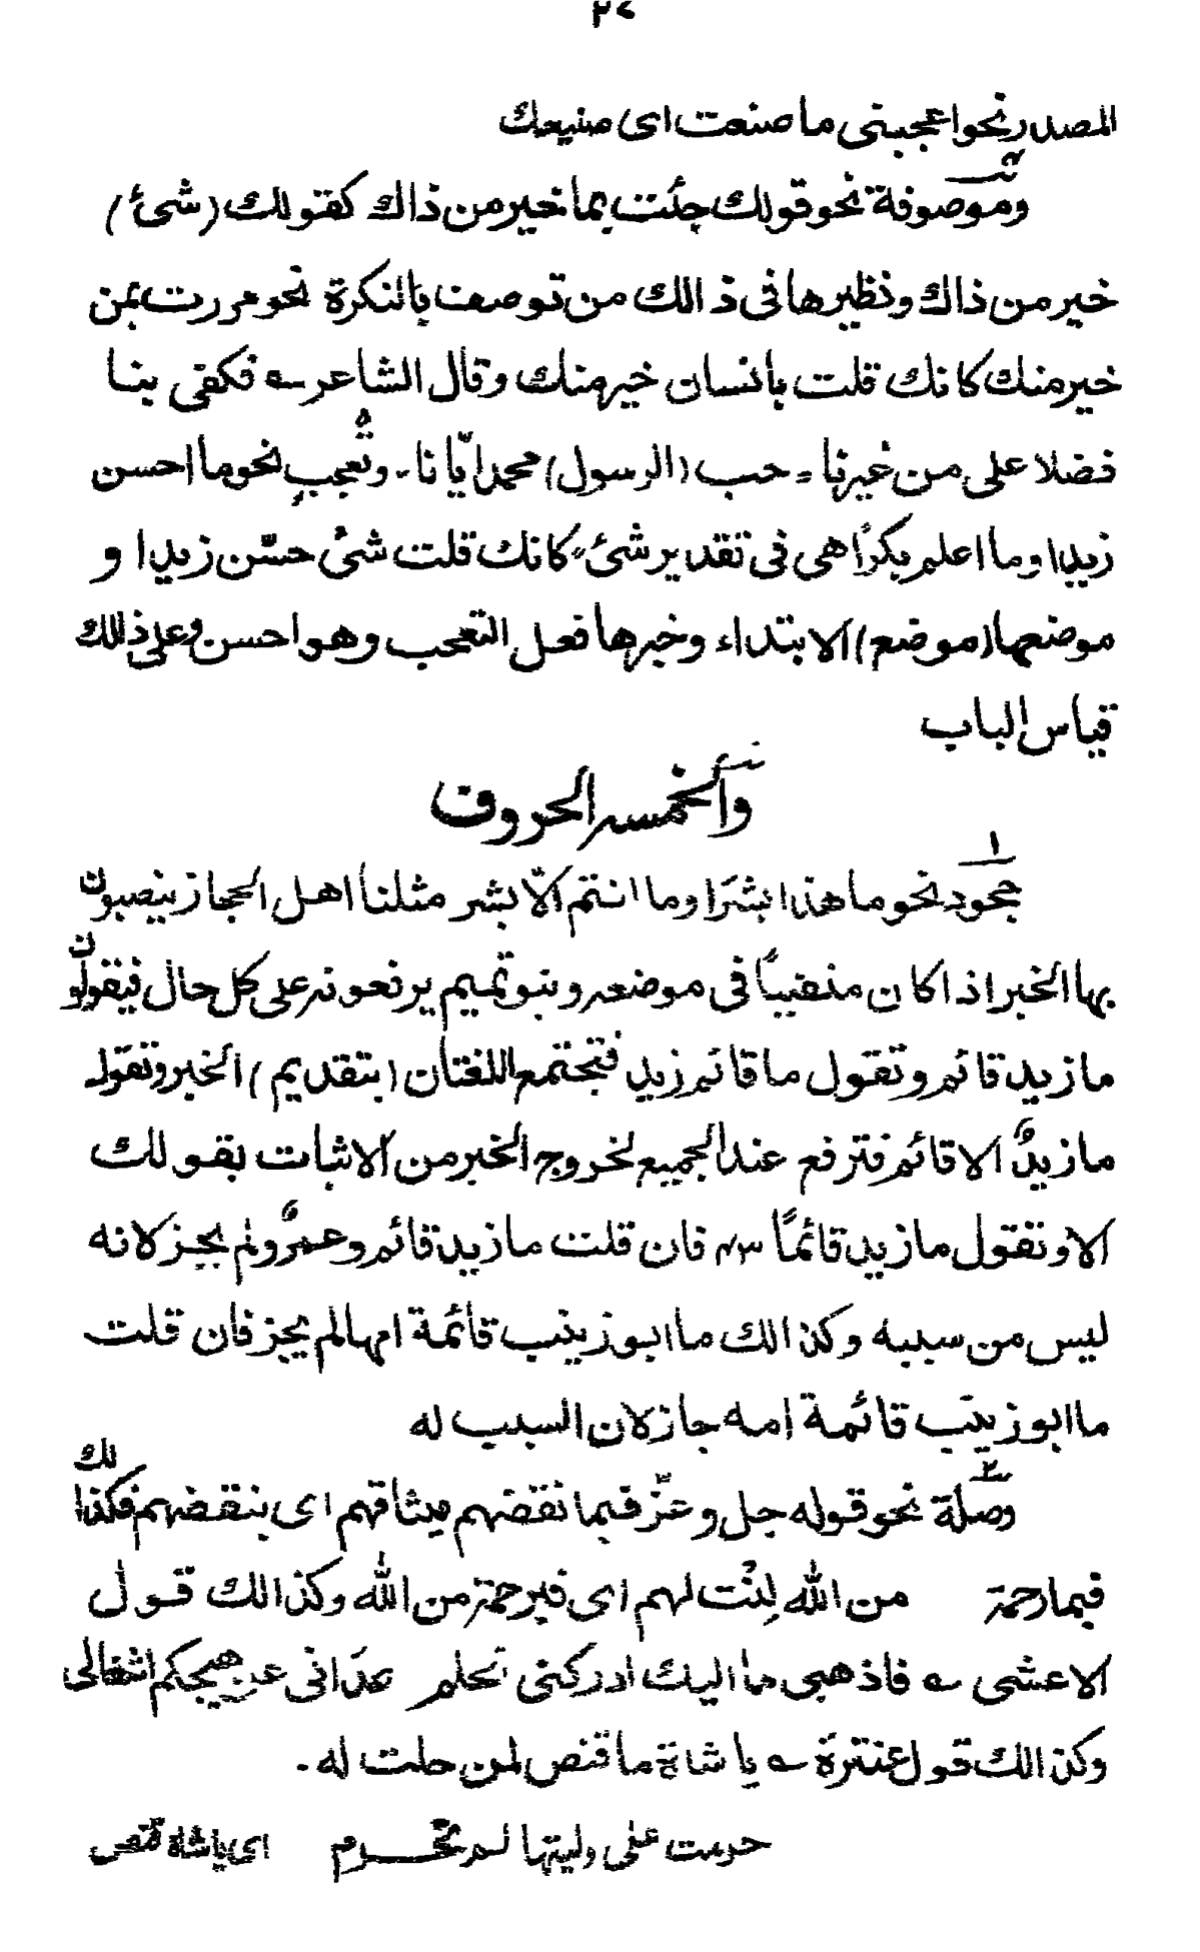 ٢٧
المصدر نحو اعجبتى ما صنعت اى صنيعك
وموصوفة نحو قولك جئت بما خير من ذاك كقولك (شئ)
خير من ذاك ونظيرها فى ذالك من توصف بالنكرة نحو مررت بمن
خير منك كانك قلت بانسان خير منك وقال الشاعر ؎ فكفى بنا
فضلا على من غيرنا - حب (الرسول) محمد ايّانا - وتعجب نحو ما احسن
زيدا وما اعلم بكرًا هى فى تقدير شئ كانك قلت شئ حسّن زيدا و
موضعها (موضع) الابتداء وخبرها فعل التعجب وهو احسن وعلى ذلك
قياس الباب
والخمسه الحروف
١
جحود نحو ما هذا بشرًا وما انتم الّا بشر مثلنا اهل الحجاز ينصبون
بها الخبر اذا كان منفيبًا فى موضعه وبنو تميم يرفعونه على كل حال فيقولون
ما زيد قائم وتقول ما قائم زيد فتجتمع اللغتان (بتقديم) الخبر وتقول
ما زيدٌ الا قائم فترفع عند الجميع لخروج الخبر من الاثبات بقولك
الا وتقول ما زيد قائمًا ٣٠؍ فان قلت ما زيد قائم وعمرٌو لم يجز لانه
ليس من سببه وكذالك ما ابو زينب قائمة امها لم يجز فان قلت
ما ابو زينب قائمة امه جاز لان السبب له
٢
وصلة نحو قوله جل وعزّ فبما نقضهم ميثاقهم اى بنقضهم فكذالك
فبما رحمة من الله لِنْت لهم اى فبرحمة من الله وكذالك قول
الاعشى ؎ فاذهبى ما اليك ادركنى تحلم عدانى عن هيجكم اشغالى
وكذالك قول عنترة ؎ يا شاة ما قنص لمن حلت له -
حرمت على وليتها لم تحرم اى يا شاة قنص